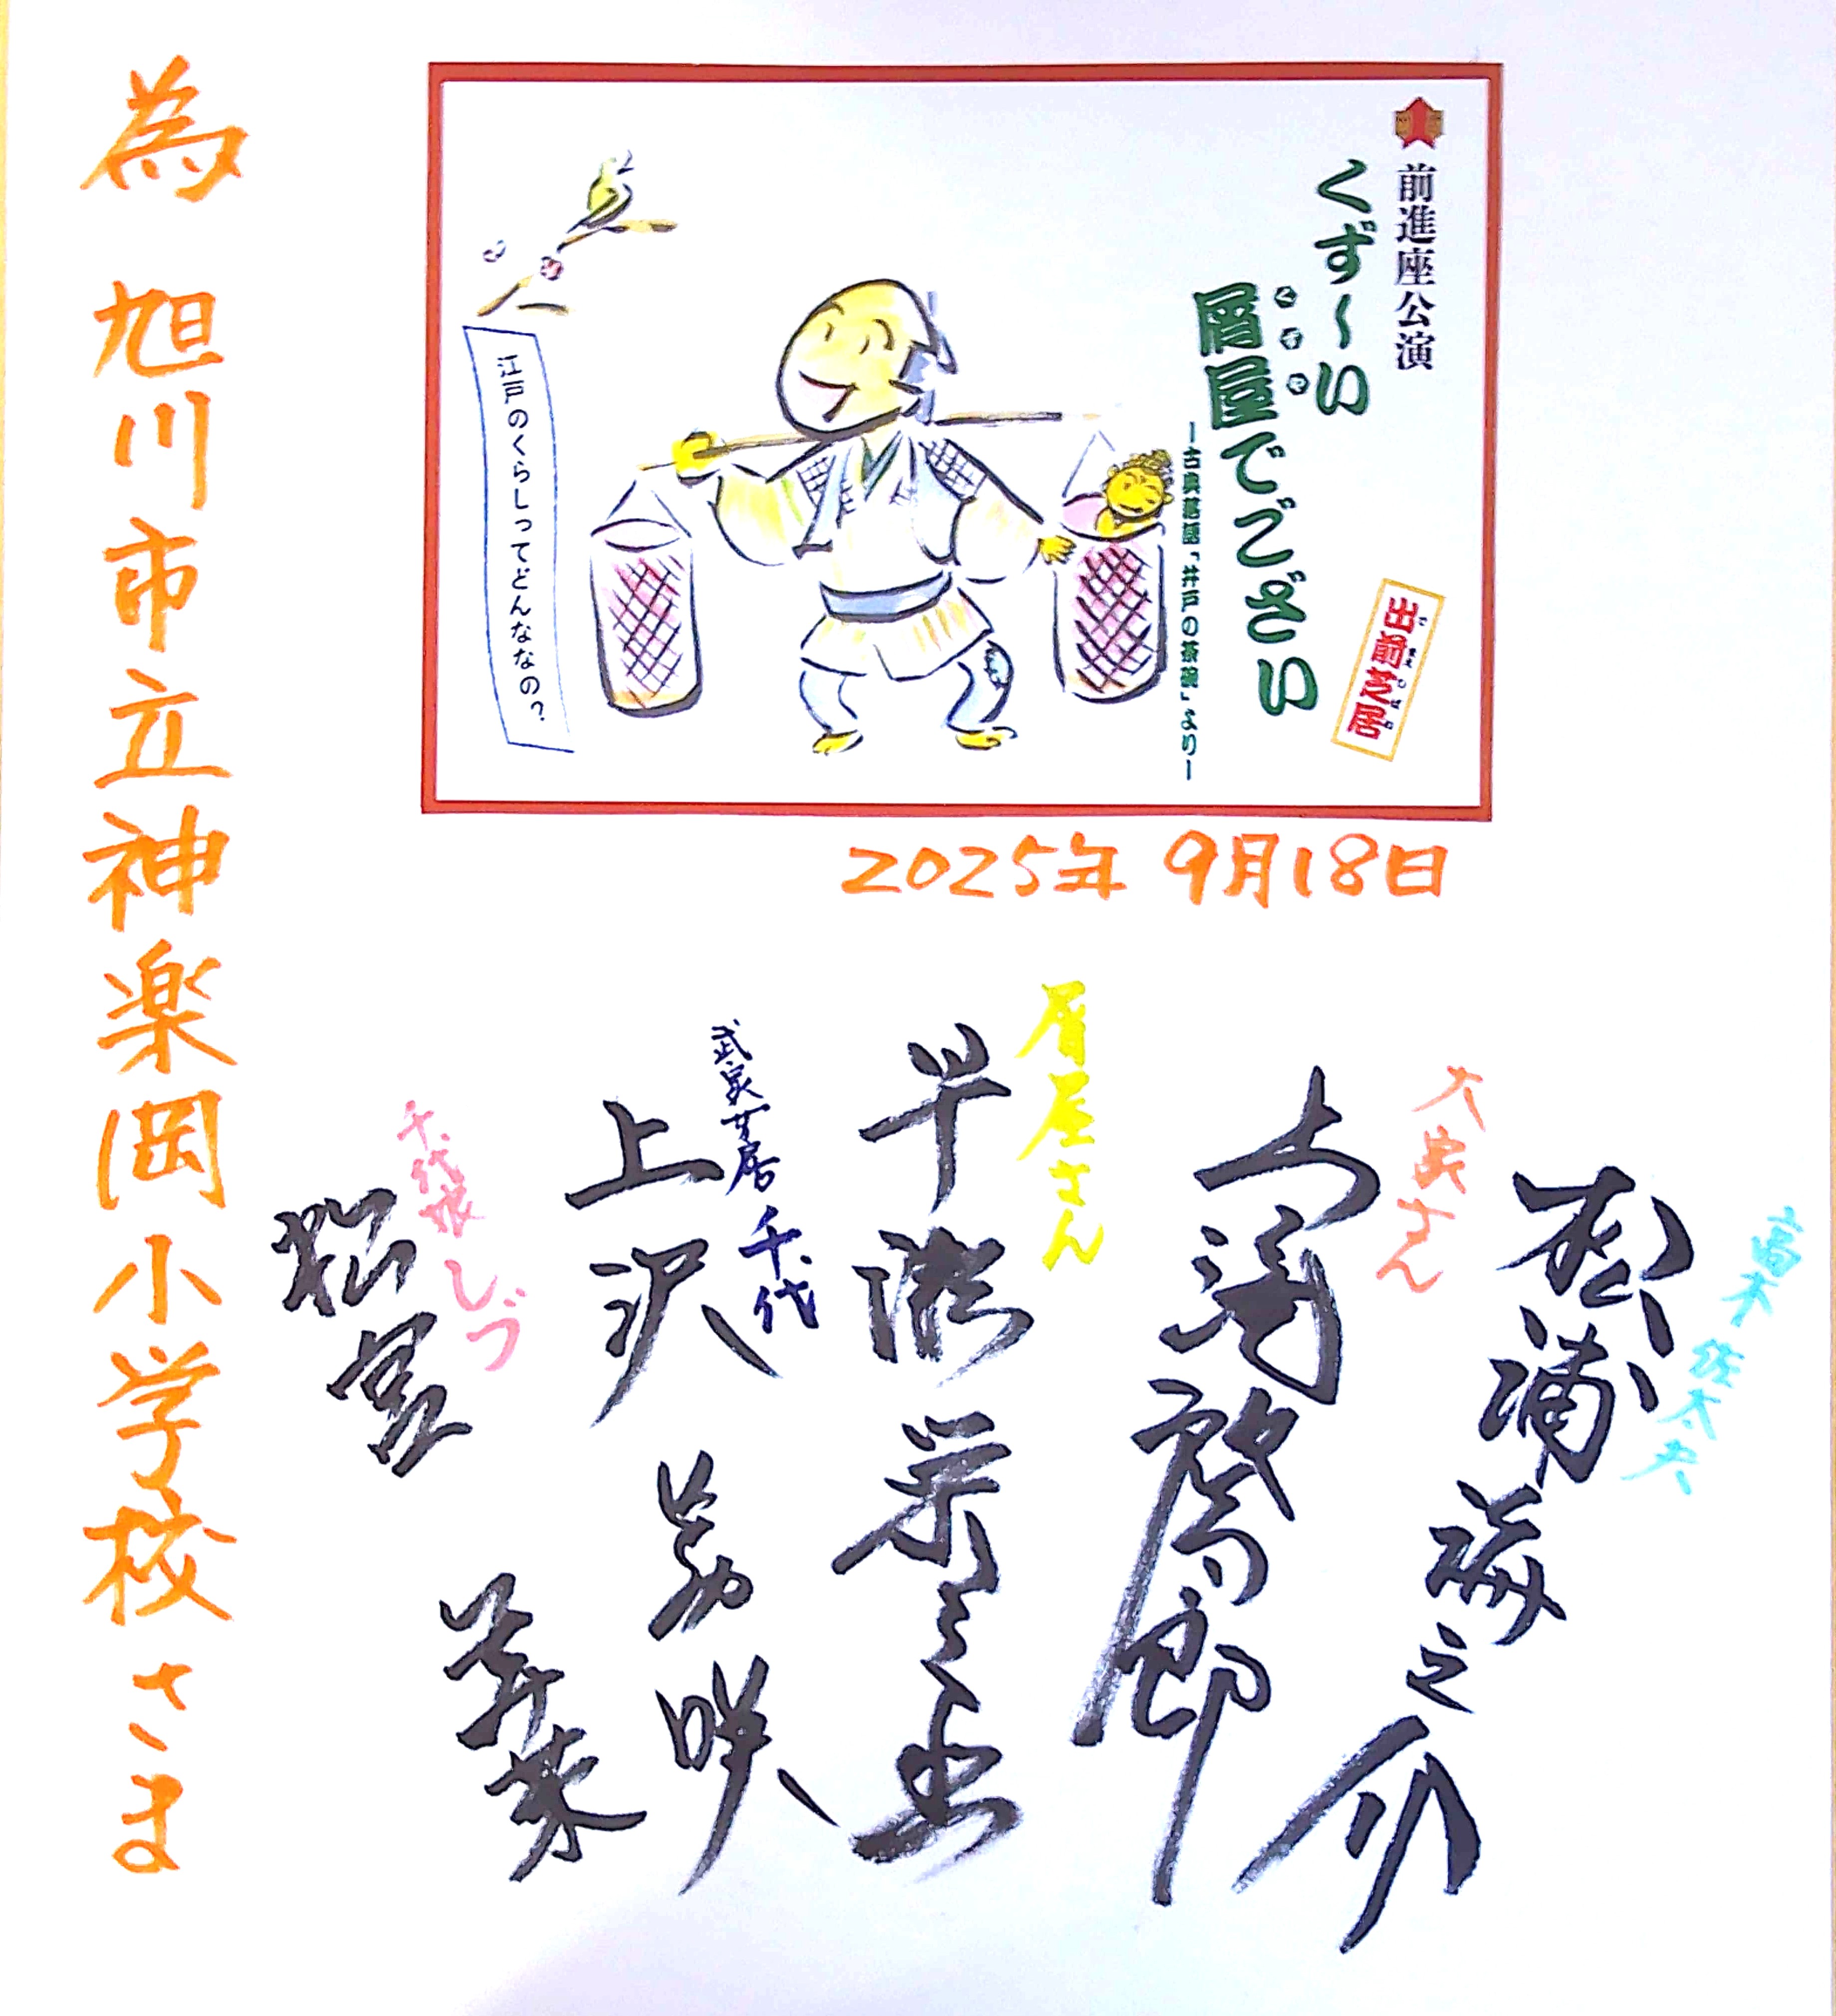 前進座公演
くず〜い
くずや
屑屋でござい
ー古典落語「井戸の茶碗」よりー
でまえしばい
出前芝居
江戸のくらしってどんななの?
2025年 9月18日
高木 佐太夫
松浦海之介
大家さん
屑屋さん
早瀬栄之丞
千代
上沢美咲
千代娘 しづ
松宮
為 旭川市立神楽岡小学校さま